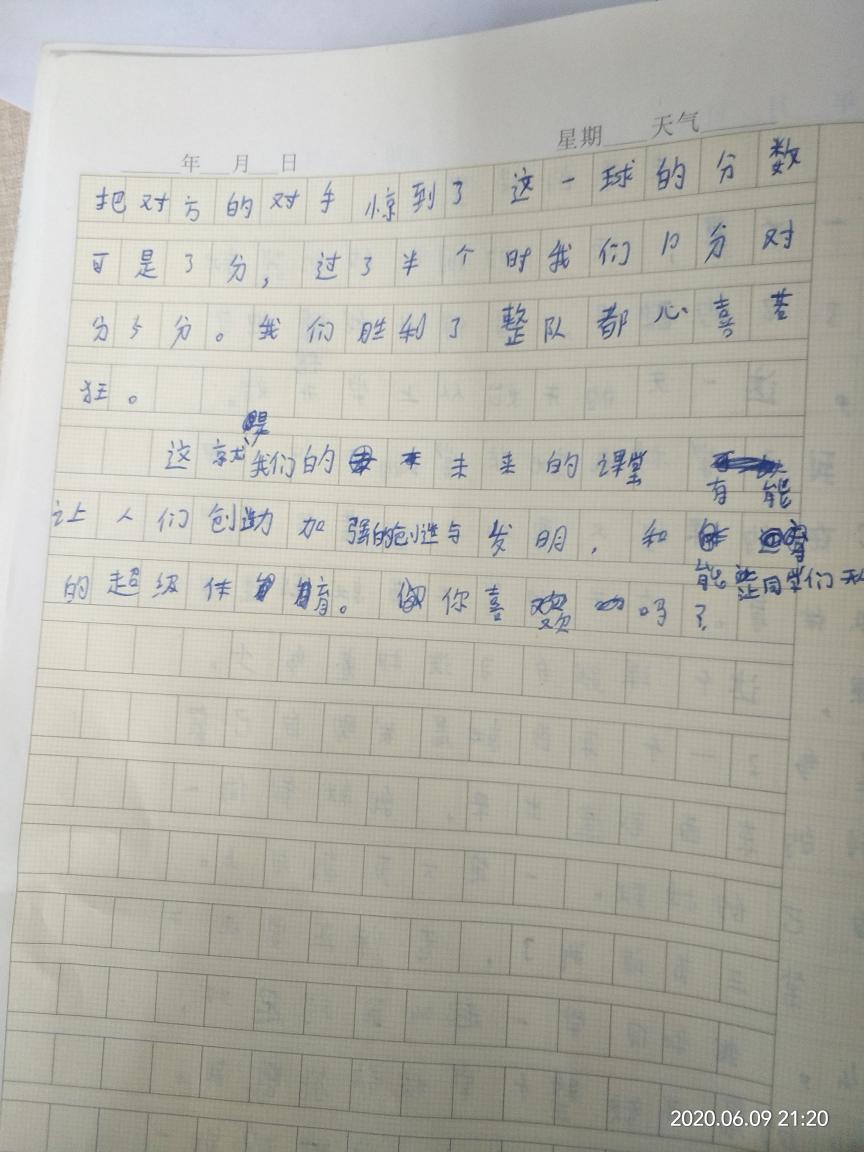 年 月 日 星期 天气
把对方的对手惊到了 这一球的分数
可是3分，过了半个时我们13分对
分5分。我们胜利了整队都心喜若
狂。
这就是我们的未来的课堂 有能
让人们创造力加强的创造与发明，和
能让同学们
的超级体育。你喜欢吗？
2020.06.09 21:20